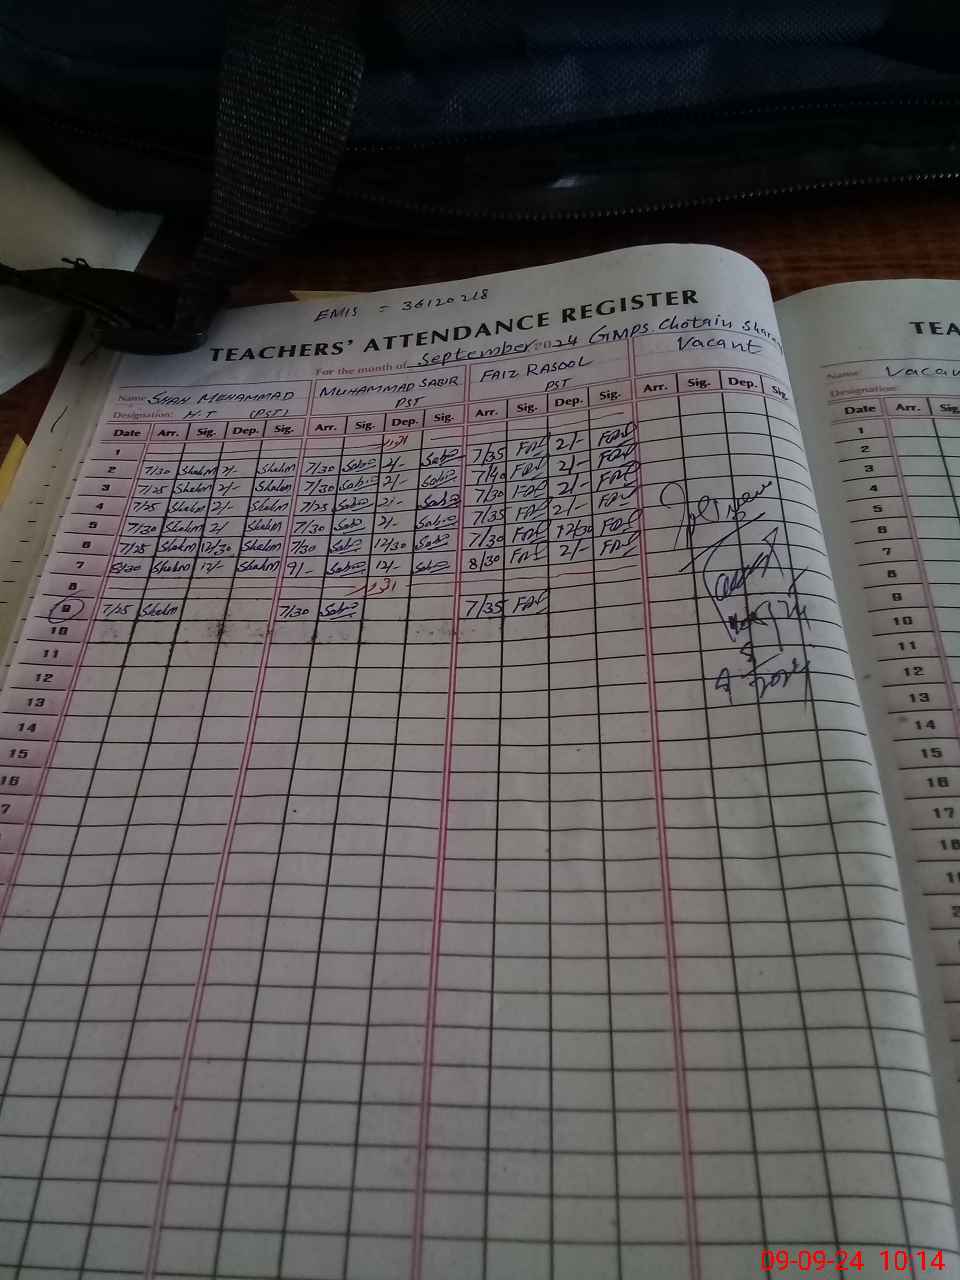 EMIS = 36120218
TEACHERS' ATTENDANCE REGISTER
TEA
For the month of September 2024 GMPS. Chotain Shar
Name: SHAH MUHAMMAD MUHAMMAD SABIR FAIZ RASOOL Vacant
Name: Vacan
Designation: H.T (PST) PST PST
Designation:
Date Arr. Sig. Dep. Sig. Arr. Sig. Dep. Sig. Arr. Sig. Dep. Sig. Arr. Sig. Dep. Sig.
Date Arr. Sig.
1
2 7/30 Shahm 2/- Shahm 7/30 Sabir 2/- Sabir 7/35 FAC 2/- FAC
3 7/25 Shahm 2/- Shahm 7/30 Sabir 2/- Sabir 7/40 FAC 2/- FAC
4 7/25 Shahm 2/- Shahm 7/25 Sabir 2/- Sabir 7/30 FAC 2/- FAC
5 7/30 Shahm 2/ Shahm 7/30 Sabir 2/- Sabir 7/35 FAC 2/- FAC
6 7/25 Shahm 12/30 Shahm 7/30 Sabir 12/30 Sabir 7/30 FAC 12/30 FAC
7 8/30 Shahm 12/- Shahm 9/- Sabir 12/- Sabir 8/30 FAC 2/- FAC
8
9 7/25 Shahm 7/30 Sabir 7/35 FAC
10
11
12
13
14
15
16
7
1
2
3
4
5
6
7
8
9
10
11
12
13
14
15
16
17
18
1
2
09-09-24 10:14